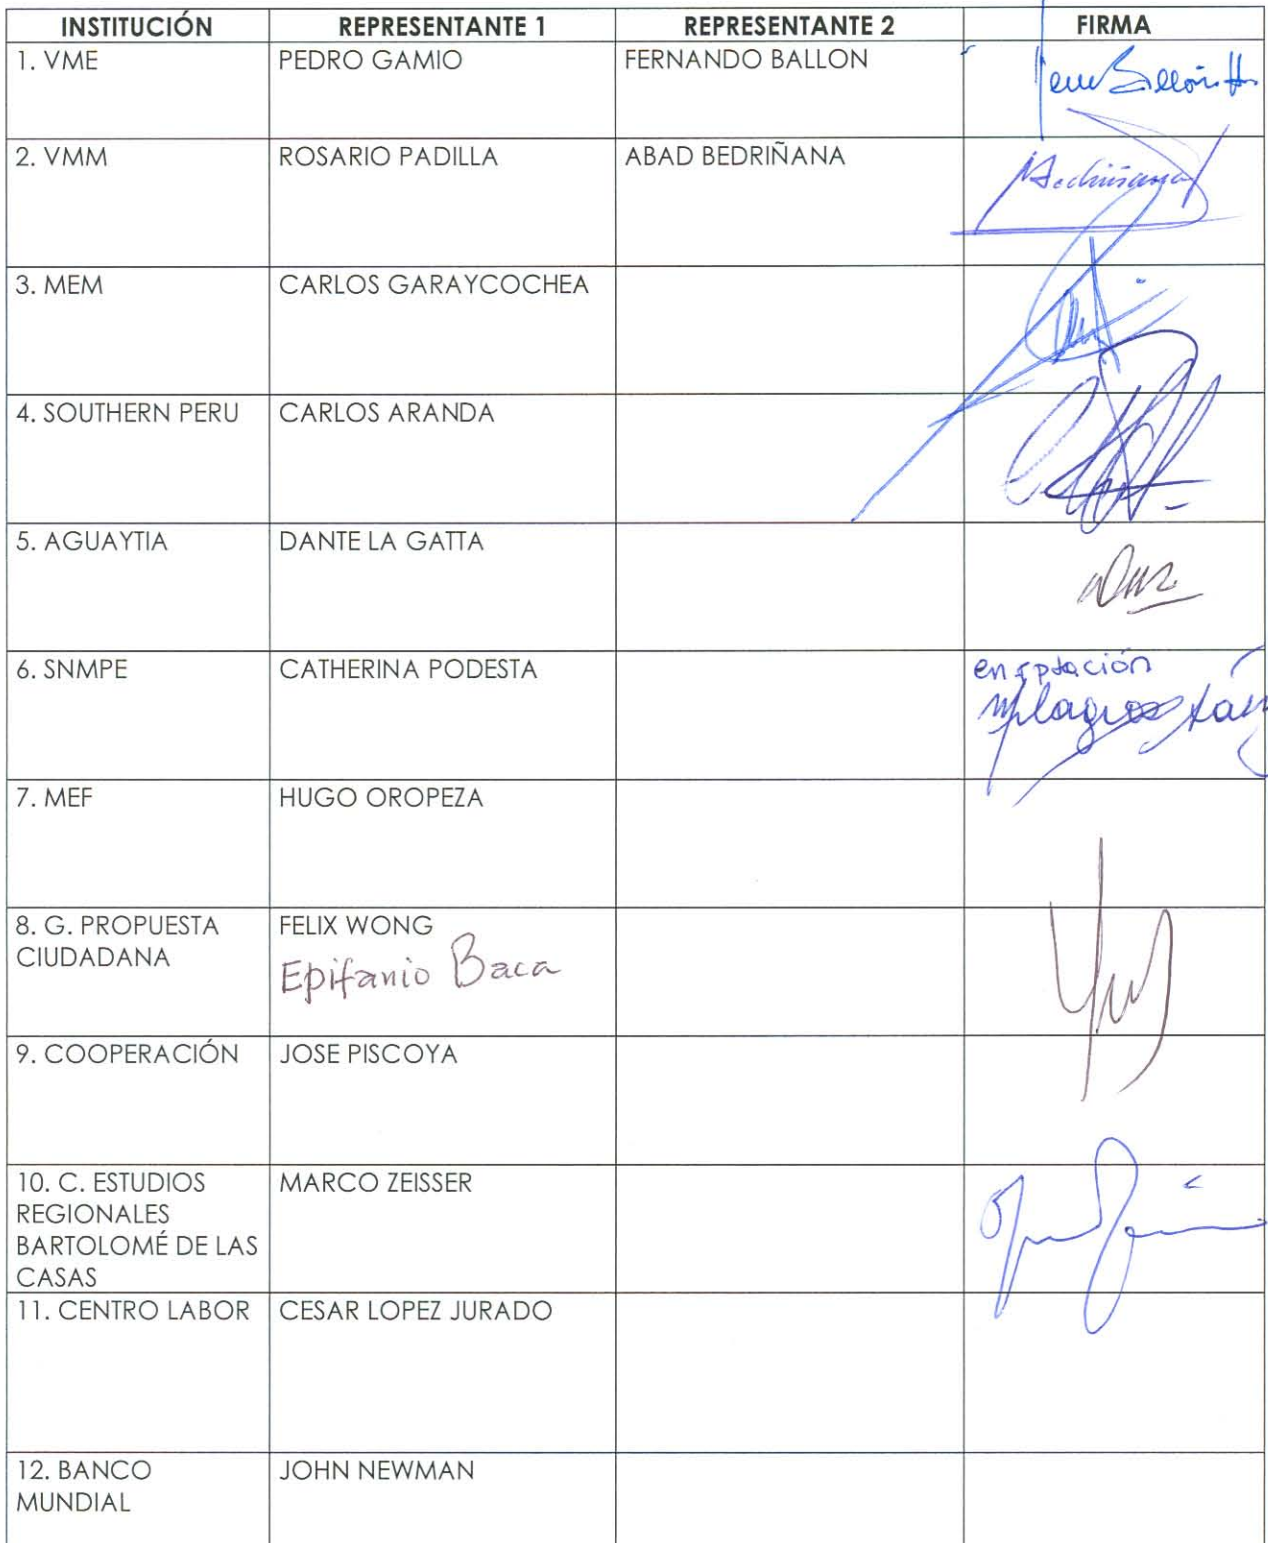 INSTITUCIÓN REPRESENTANTE 1 REPRESENTANTE 2 FIRMA
1. VME PEDRO GAMIO FERNANDO BALLON
2. VMM ROSARIO PADILLA ABAD BEDRIÑANA
3. MEM CARLOS GARAYCOCHEA
4. SOUTHERN PERU CARLOS ARANDA
5. AGUAYTIA DANTE LA GATTA
6. SNMPE CATHERINA PODESTA en rptación
Milagros
7. MEF HUGO OROPEZA
8. G. PROPUESTA FELIX WONG
CIUDADANA Epifanio Baca
9. COOPERACIÓN JOSE PISCOYA
10. C. ESTUDIOS MARCO ZEISSER
REGIONALES
BARTOLOMÉ DE LAS
CASAS
11. CENTRO LABOR CESAR LOPEZ JURADO
12. BANCO JOHN NEWMAN
MUNDIAL